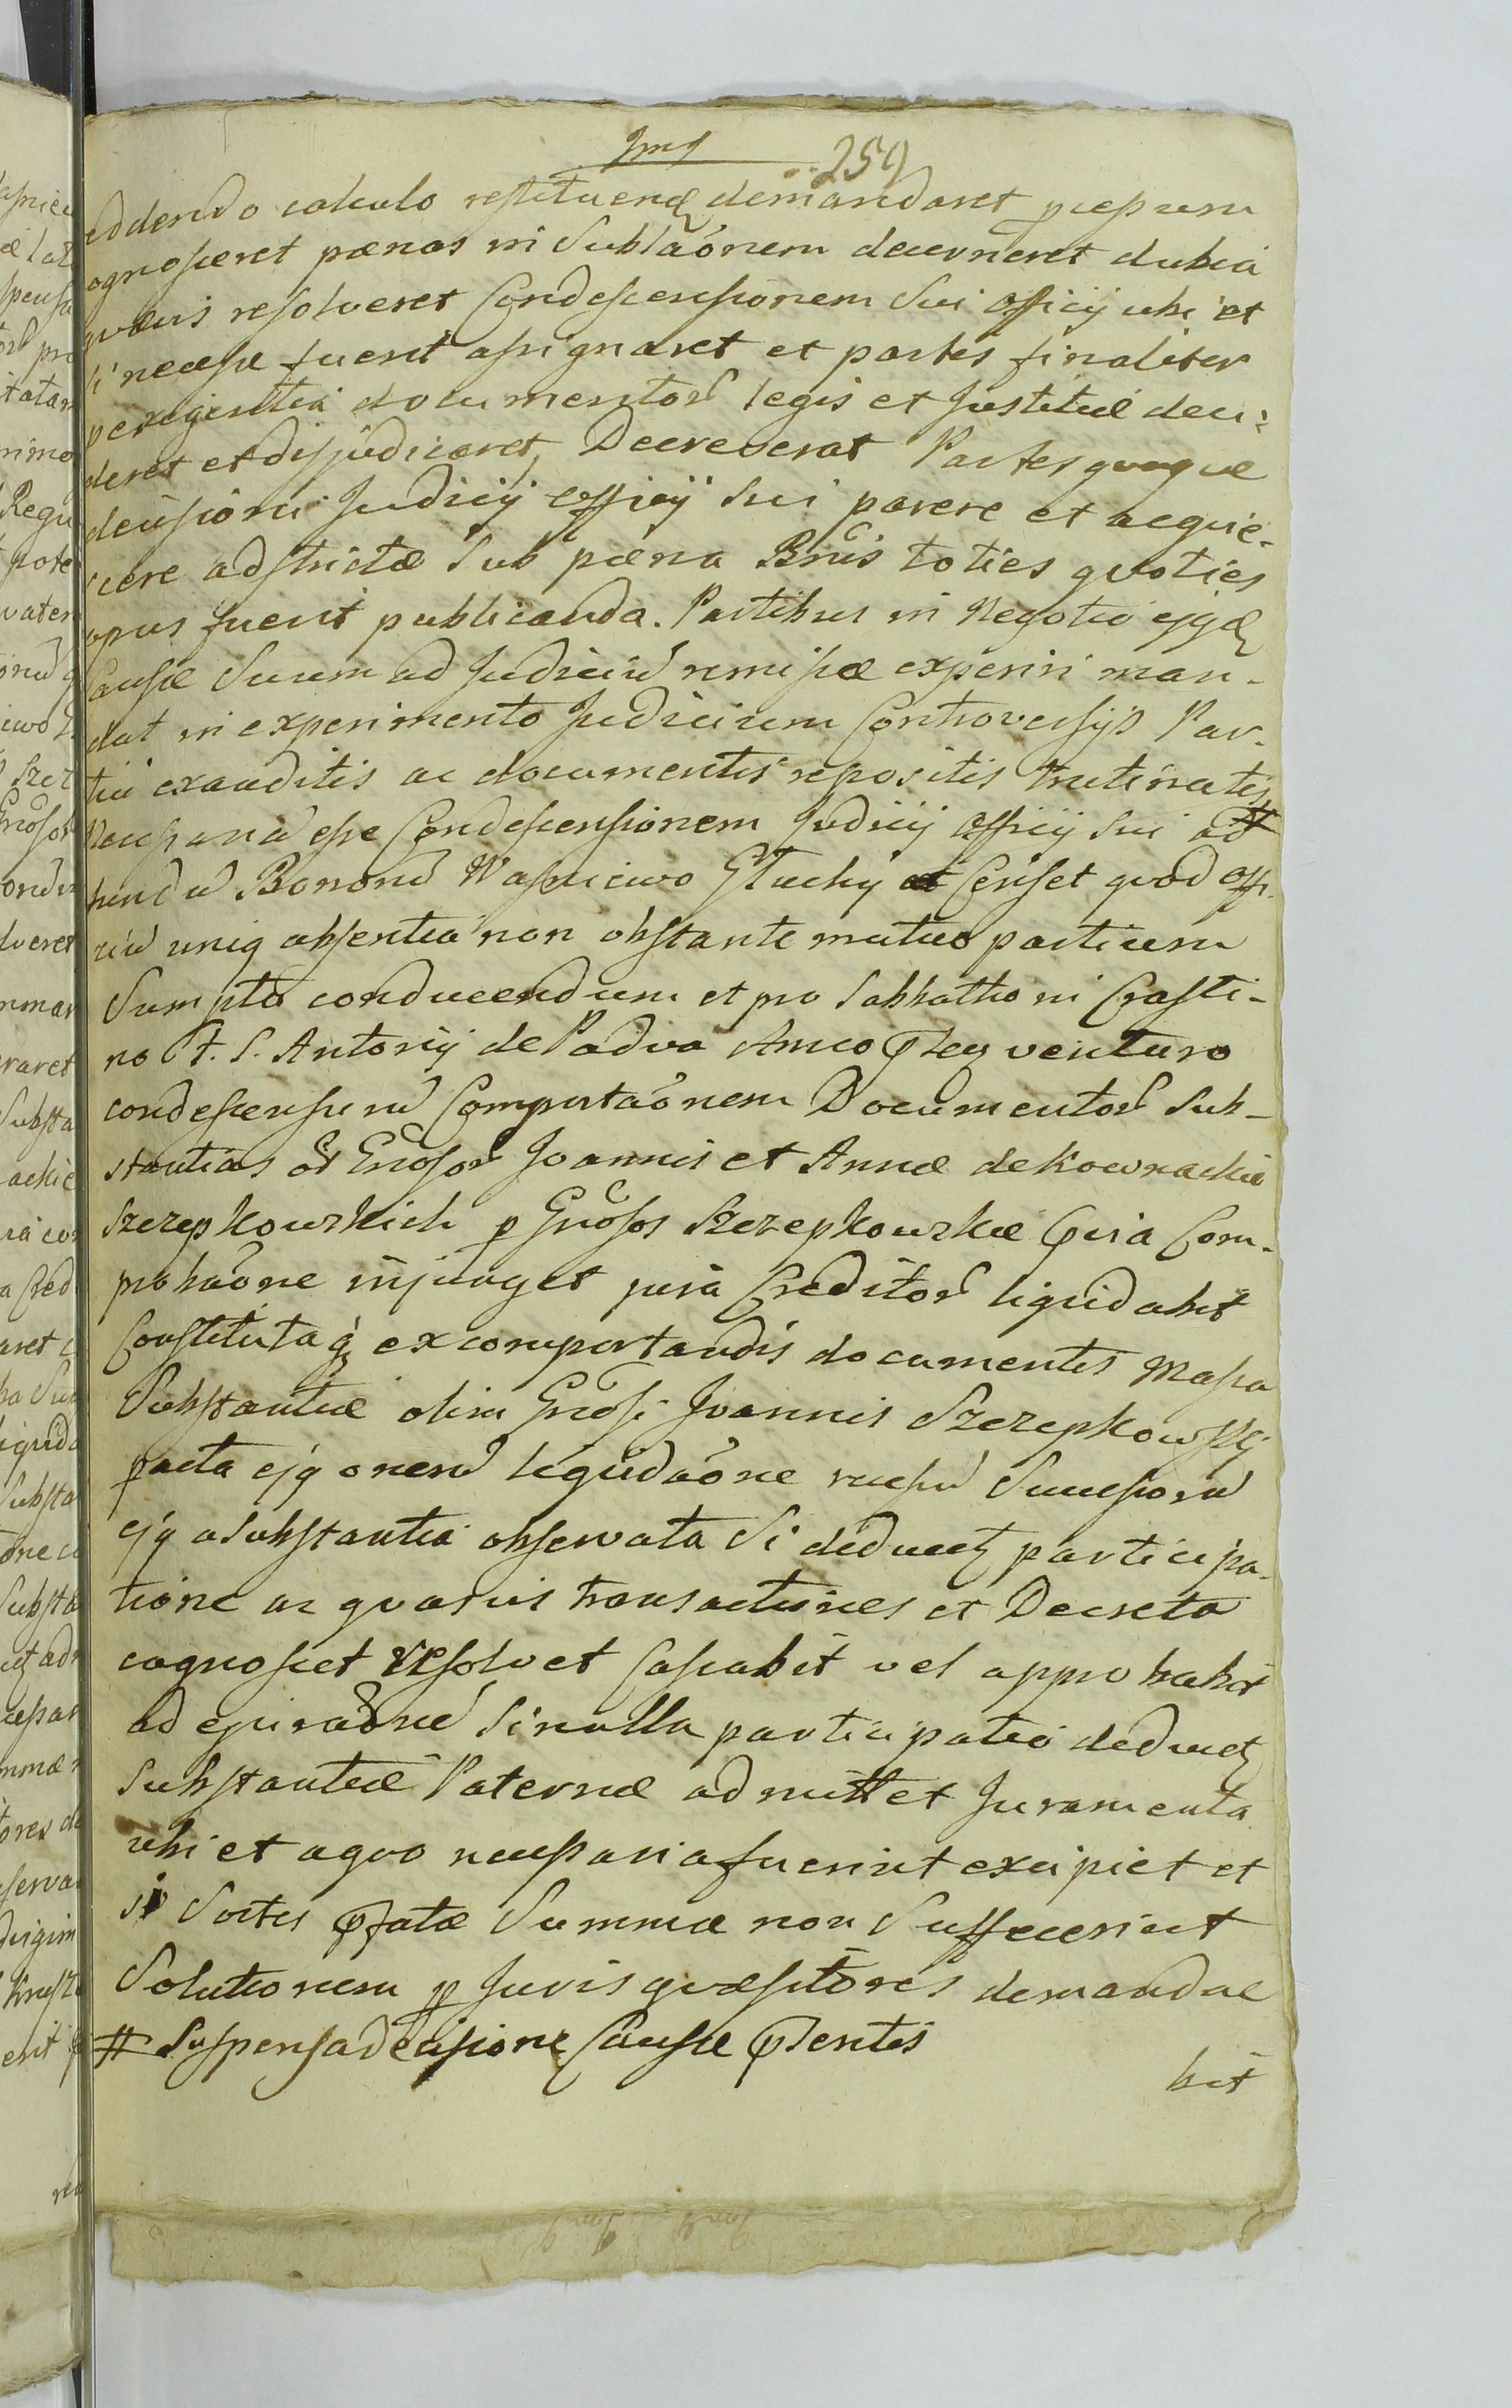 259
eddendo calculo restituend demandaret pcepum
ognosceret pænas in Sublaõnem decerneret dubia
quævis resolveret Condescensionem Sui Officij ubi et
si necesse fuerit assignaret et partes finaliter
pexigentia documentor legis et Justitiæ deci:
deret et disjudicaret, Decreverat Partesquoque
decisioni Judicij Officij Sui parere et acquie-
scere adstrictæ Sub pæna Bnis toties quoties
opus fuerit publicanda. Partibus in Negotio ejqd
Causæ Suum ad Judiciũ remissæ experiri man-
dat in experimento Judicium Controversijs Par-
tiũ exauditis ac documentis repositis trutinatis
Necessariã esse Condescensionem Judicij Officij Sui ad #
hendũ Bonorũ Wasniewo Gluchy Censet quod offi-
ciũ uniq absentia non obstante mutuo partium
Sumptu conducendum et pro Sabbatho in Crasti-
no F. S. Antonij de Padva Anno Pleq venturo
condescensurũ Comportaõnem Documentor Sub-
stantias ol Gnosor Joannis et Annæ deKownackie
Szczepkowskich p Gnosos Szczepkowskie Cuia Com-
probaõne injunget jura Creditor liquidabit
Constitutaq excomportandis documentis Massa
Substantiæ olim Gnosi Joannis Szczepkowskij
facta ejq onerũ liquidaõne respũ Sucessorũ
ejq asubstantia observata Si deducet participa-
tione ac quasvis transactiones et Decreta
cognoscet resolvet Cassabit vel approbabit
ad Si nulla participatio deducet
Substantiæ Paternæ admittet Juramenta
ubi et aquo necessaria fuerint excipiet et
si Sortes pfatæ Summæ non Suffecerint
Solutionem p Juris quæsitores demandae
# Suspensa decisione Causæ Psentis
bit